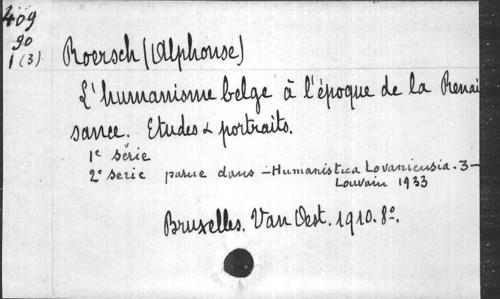 409
90
1(3)
Roersch (Alphonse)
L'humanisme belge à l'époque de la Renai
sance. Etudes & portraits.
1e série
2e serie parue dans - Humanistica Lovaniensia. 3 -
Louvain 1933
Bruxelles. Van Oest. 1910. 8o.